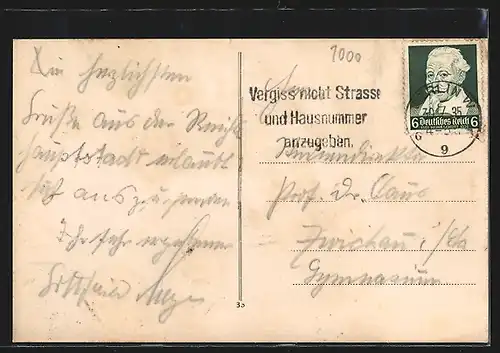 1000
Die herzlichsten
Grüße aus der Reichs
hauptstadt erlaubt
sich auszusenden
Ihr sehr ergebener
Gottfried Meyer
Vergiss nicht Strasse
und Hausnummer
anzugeben.
BERLIN
35
9
6 Deutsches Reich 6
Herrn
Studiendirektor
Prof. Dr. Claus
Zwickau i/Sa
Gymnasium
33